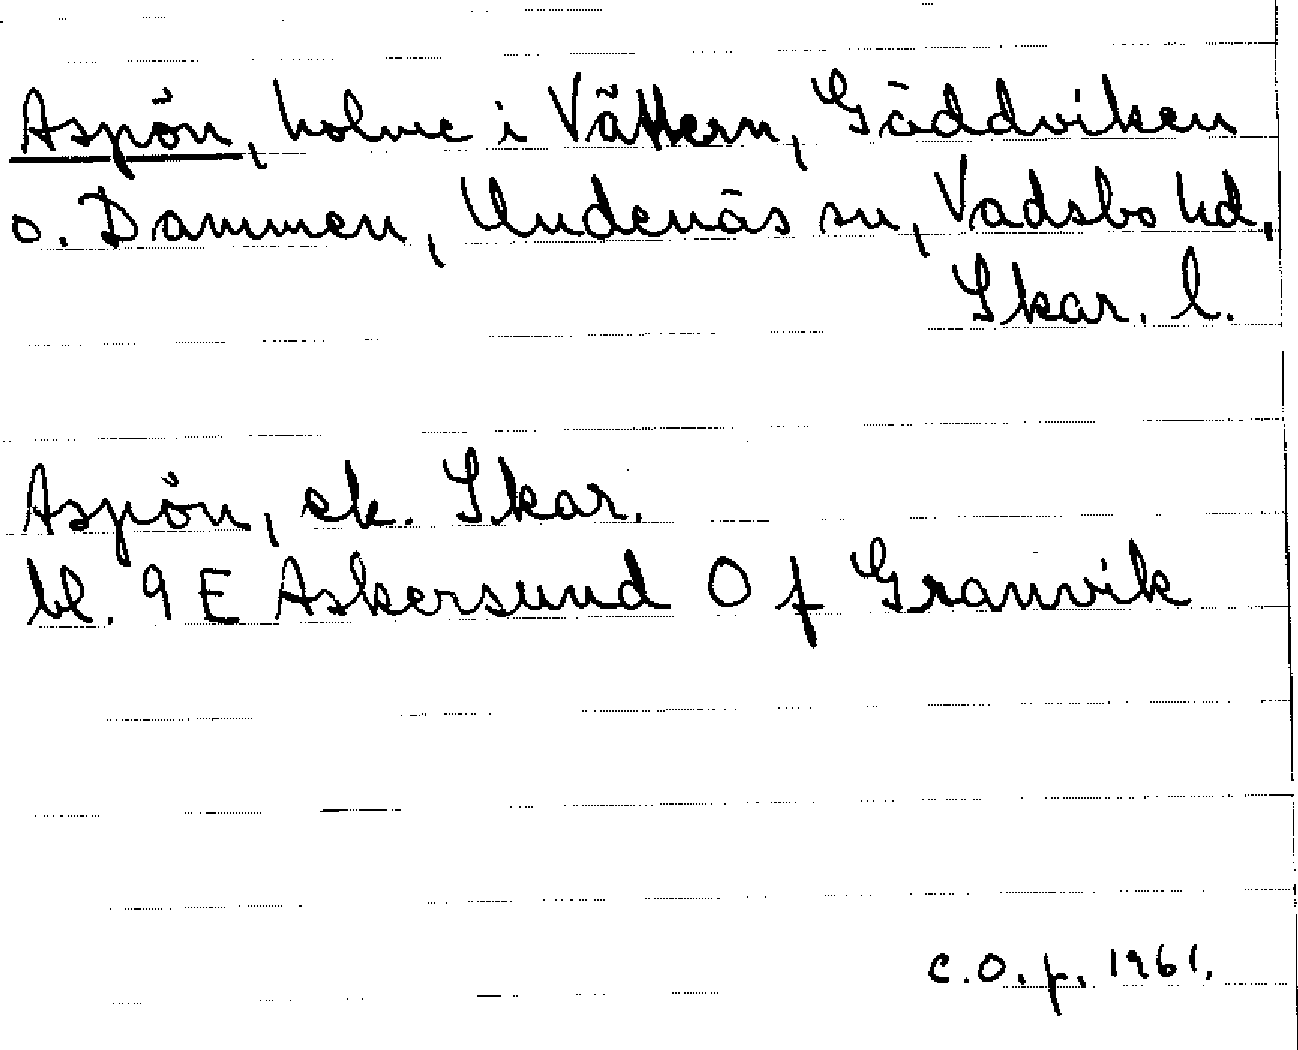 Aspön, holme i Vättern, Gäddviken
o. Dammen, Undenäs sn, Vadsbo hd,
Skar. l.
Aspön, ek. Skar.
bl. 9 E Askersund O f Granvik
C.O.f. 1961.